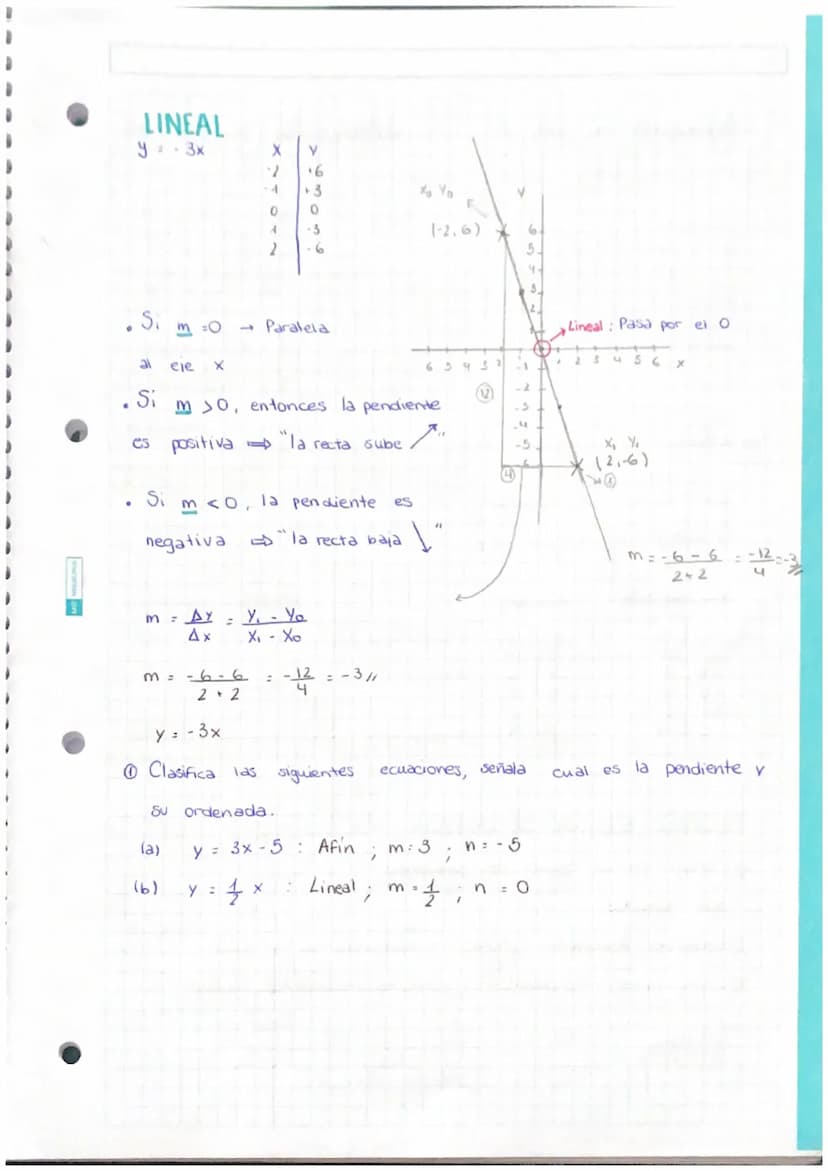 LINEAL
y = -3x
X | Y
-2 | +6
-1 | +3
0 | 0
1 | -3
2 | -6
X₀ Y₀
(-2,6)
Y
6
5
4
3
2
1
Lineal : Pasa por el 0
6 5 4 3 2 1 2 3 4 5 6 X
-1
-2
-3
-4
-5
-6
(12)
(4)
X₁ Y₁
(2,-6)
• Si m =0 → Paralela
al eje x
• Si m >0, entonces la pendiente
es positiva ⇒ "la recta sube ↗"
• Si m <0, la pendiente es
negativa ⇒ "la recta baja ↘"
m = -6 - 6 / 2+2 = -12/4 = -3
m = Δy/Δx = Y₁ - Y₀ / X₁ - X₀
m = -6 - 6 / 2 + 2 = -12/4 = -3//
y = -3x
① Clasifica las siguientes ecuaciones, señala cual es la pendiente y
su ordenada.
(a) y = 3x - 5 : Afín ; m: 3 ; n = -5
(b) y = 1/2 x : Lineal ; m = 1/2 ; n = 0